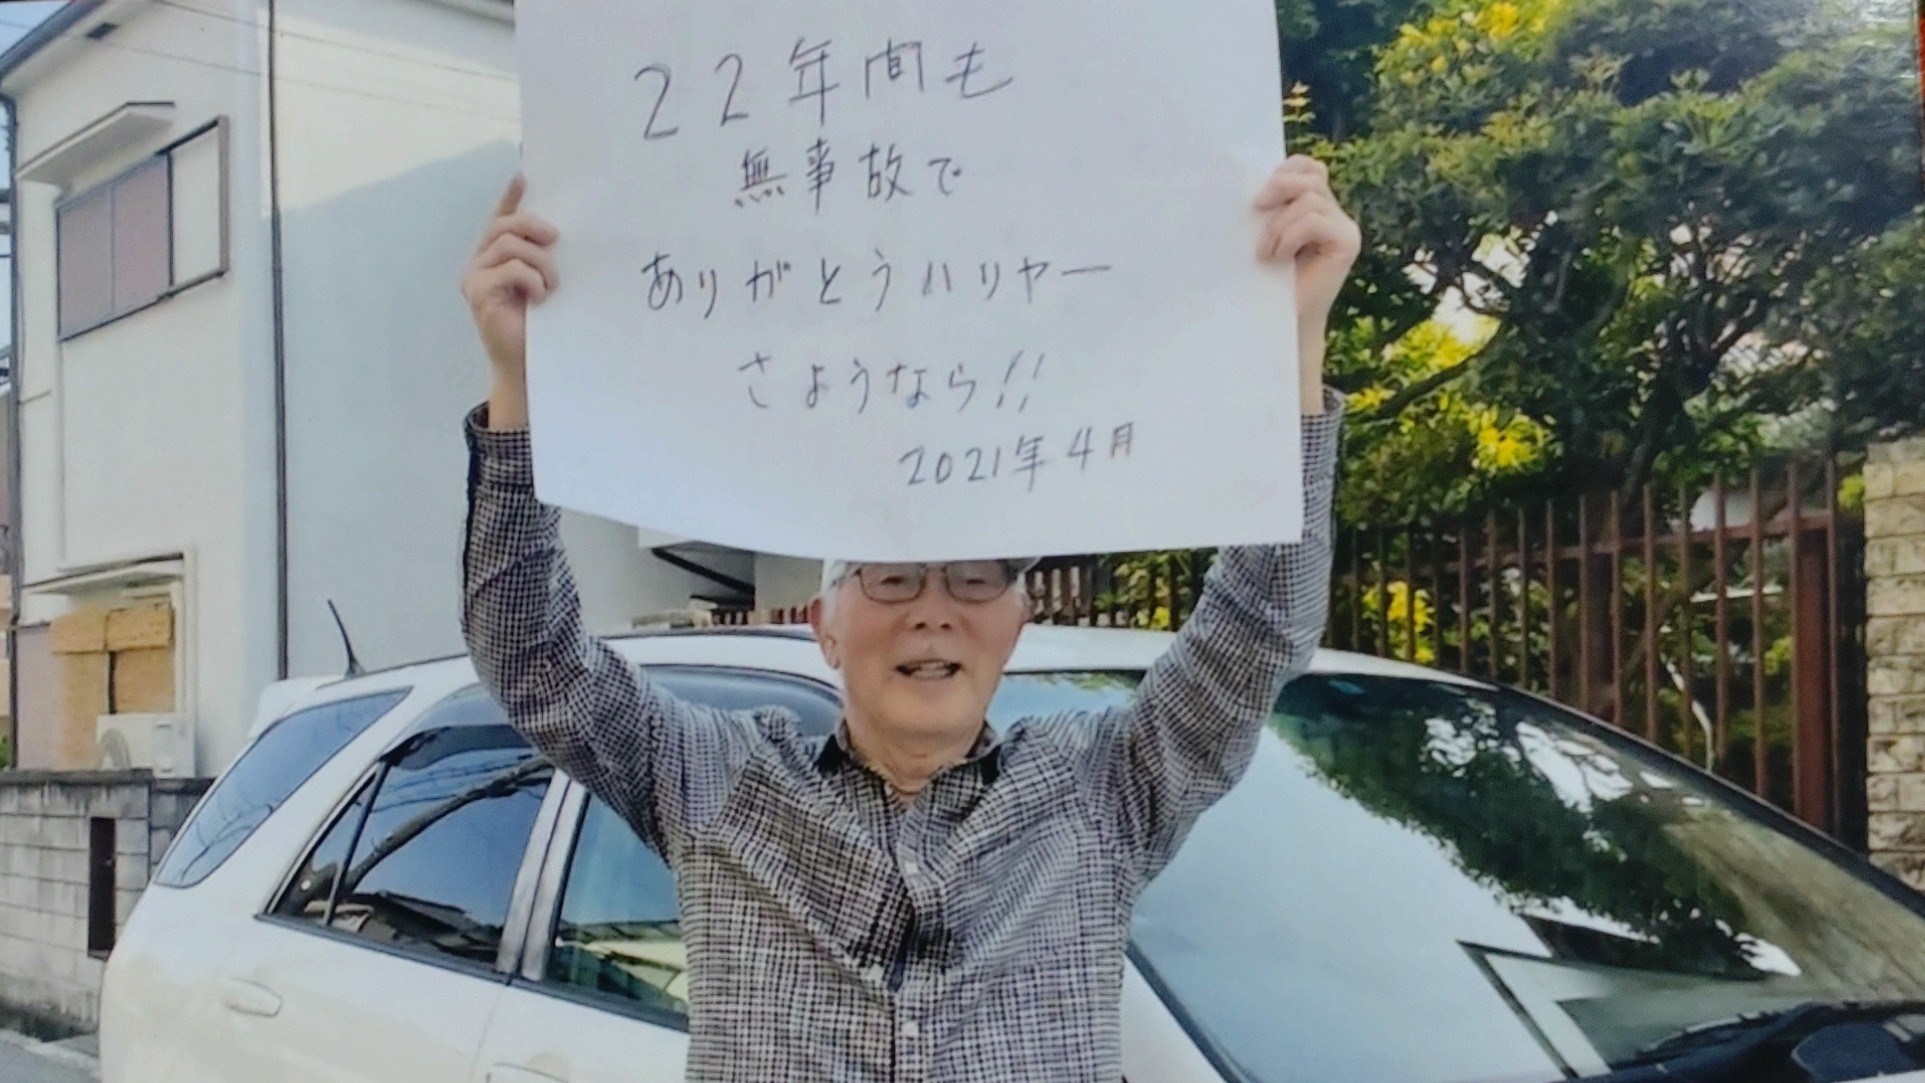 22年間も
無事故で
ありがとうハリヤー
さようなら!!
2021年4月